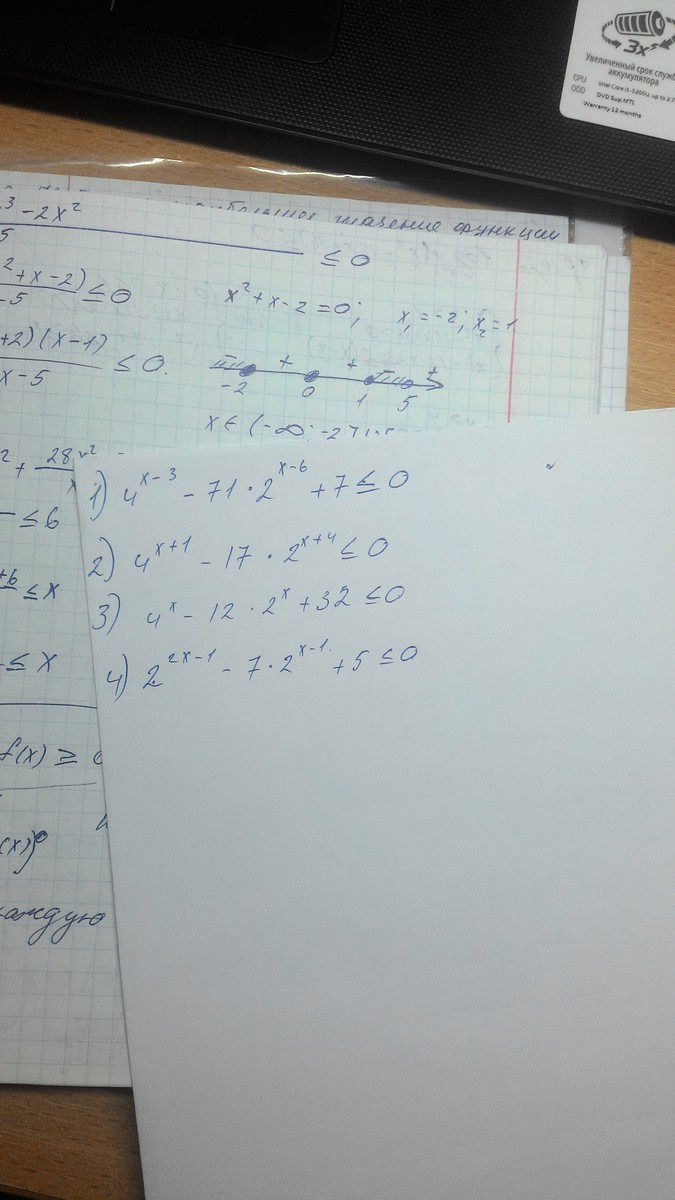 3x
Увеличенный срок служб
аккумулятора
CPU Intel Core i5-5200U, up to 2.7
ODD DVD Sup.MTL
Warranty 12 months
значение функции
3 - 2x²
5
≤ 0
2 + x - 2) ≤ 0
-5
x² + x - 2 = 0; x₁ = -2; x₂ = 1
+2)(x-1) ≤ 0.
x-5
+ + +
-2 0 1 5
x ∈ (-∞; -2]
2 + 28x²
x
≤ 6
+6 ≤ x
≤ x
f(x) ≥
(x))
каждую
1) 4^{x-3} - 71 · 2^{x-6} + 7 ≤ 0
2) 4^{x+1} - 17 · 2^{x+4} ≤ 0
3) 4^x - 12 · 2^x + 32 ≤ 0
4) 2^{2x-1} - 7 · 2^{x-1} + 5 ≤ 0